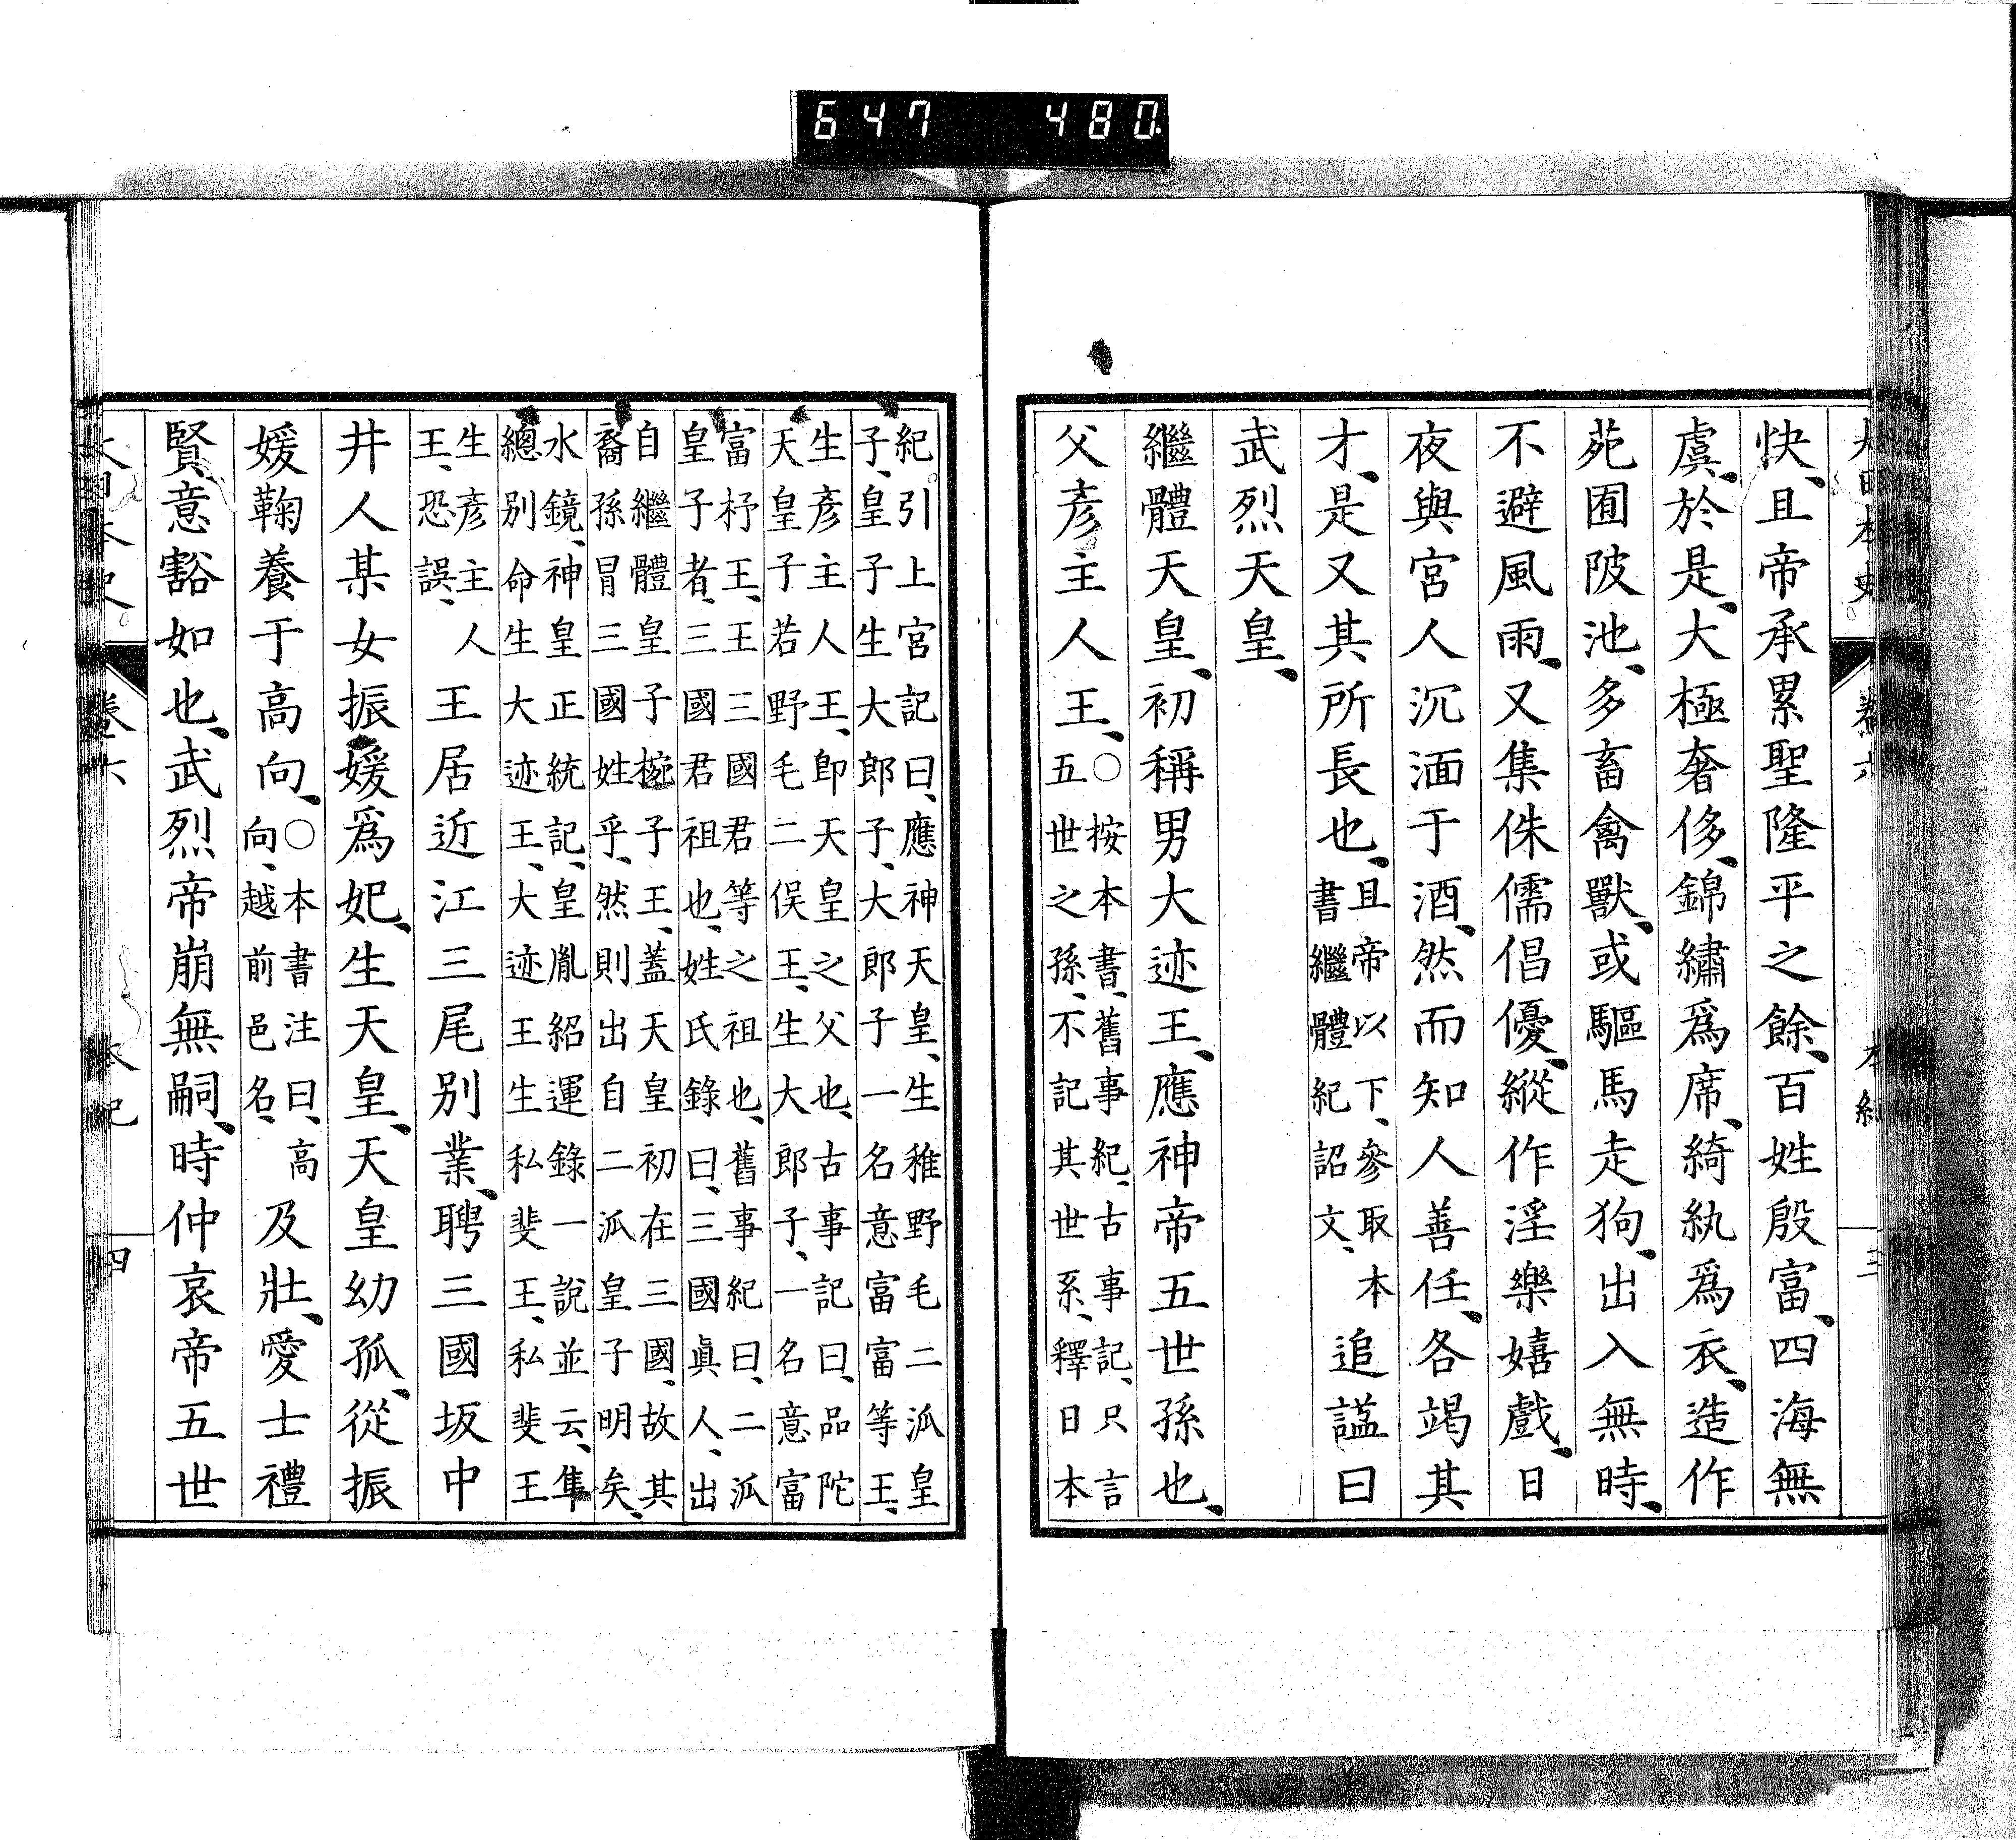 647 480
大日本史 卷六 本紀 三
快、且帝承累聖隆平之餘、百姓殷富、四海無
虞、於是、大極奢侈、錦繡爲席、綺紈爲衣、造作
苑囿陂池、多畜禽獸、或驅馬走狗、出入無時、
不避風雨、又集侏儒倡優、縱作淫樂嬉戲、日
夜與宮人沉湎于酒、然而知人善任、各竭其
才、是又其所長也、且帝以下、參取本
書繼體紀詔文、追謚曰
武烈天皇、
繼體天皇、初稱男大迹王、應神帝五世孫也、
父彥主人王、○按本書、舊事紀、古事記、只言
五世之孫、不記其世系、釋日本
紀引上宮記曰、應神天皇、生稚野毛二派皇
子、皇子生大郎子、大郎子一名意富富等王、
生彥主人王、即天皇之父也、古事記曰、品陀
天皇子若野毛二俣王、生大郎子、一名意富
富杼王、王三國君等之祖也、舊事紀曰、二派
皇子者、三國君祖也、姓氏錄曰、三國眞人、出
自繼體皇子椀子王、蓋天皇初在三國、故其
裔孫冒三國姓乎、然則出自二派皇子明矣、
水鏡、神皇正統記、皇胤紹運錄一說並云、隼
總別命生大迹王、大迹王生私斐王、私斐王
生彥主人
王、恐誤、王居近江三尾別業、聘三國坂中
井人某女振媛爲妃、生天皇、天皇幼孤、從振
媛鞠養于高向、○本書注曰、高
向、越前邑名、及壯、愛士禮
賢、意豁如也、武烈帝崩無嗣、時仲哀帝五世
大日本史 卷六 本紀 四